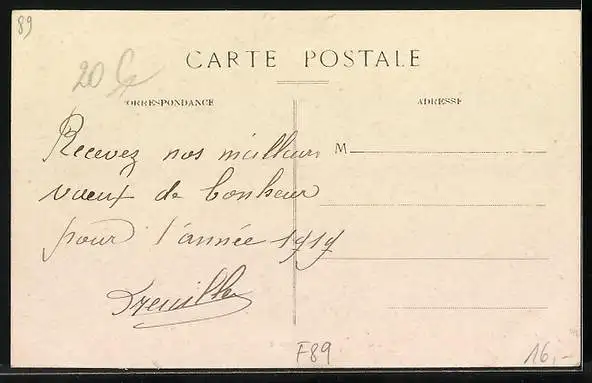 89
CARTE POSTALE
20
CORRESPONDANCE
ADRESSE
Recevez nos meilleurs
vœux de bonheur
M
pour l'année 1919
F89
16,-